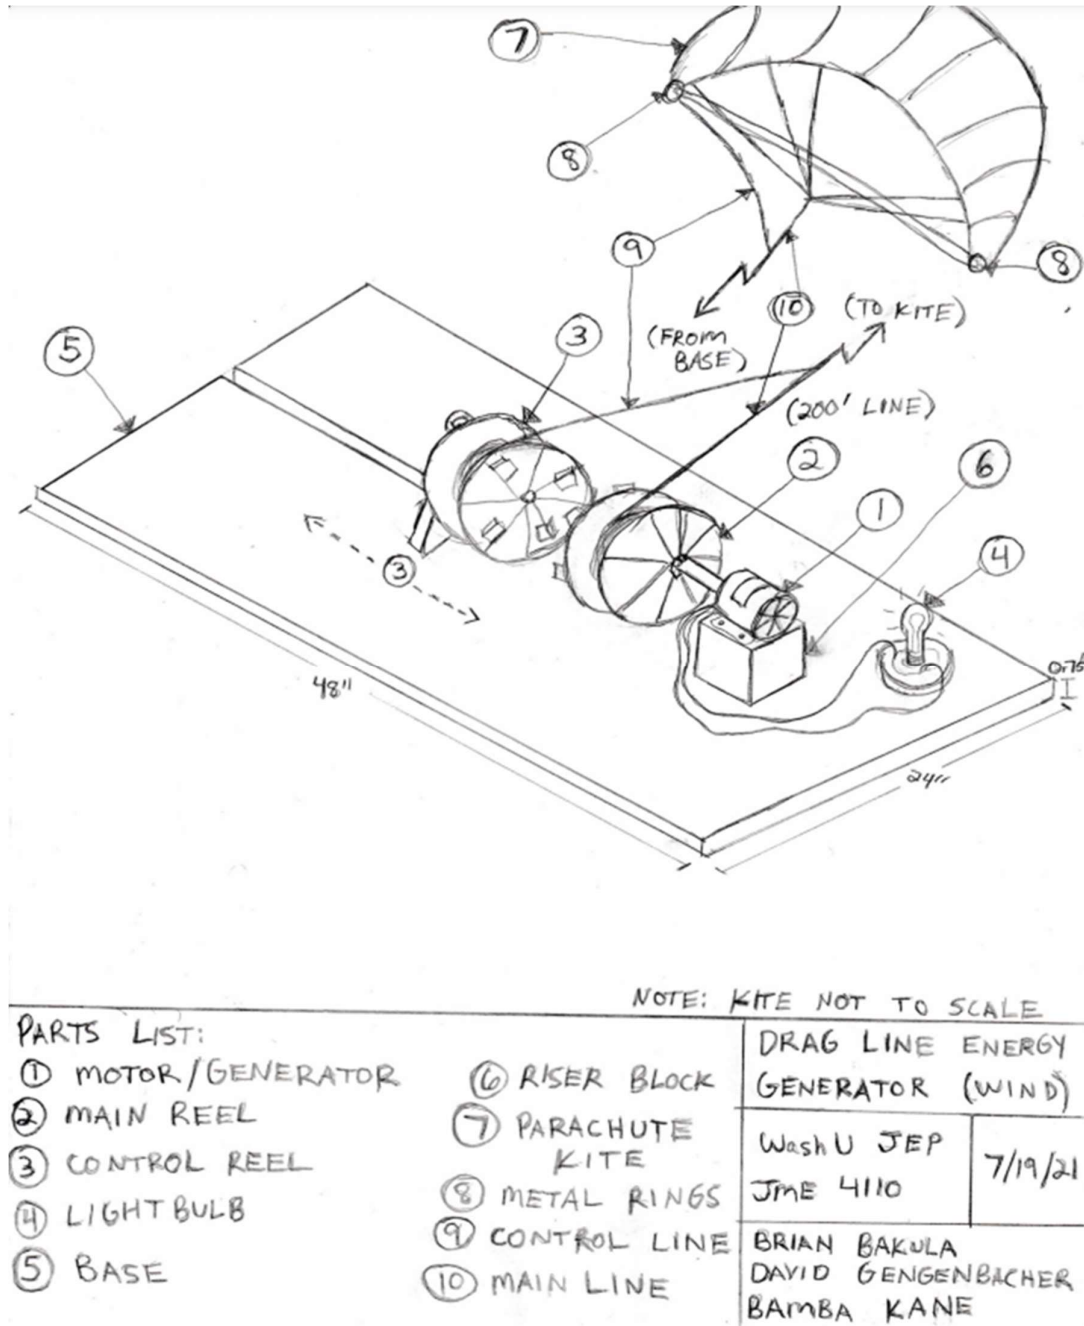 7
8
9
8
10
(TO KITE)
(FROM
BASE)
3
5
(200' LINE)
2
6
1
3
4
48"
0.75
24"
NOTE: KITE NOT TO SCALE
PARTS LIST:
1 MOTOR/GENERATOR
2 MAIN REEL
3 CONTROL REEL
4 LIGHTBULB
5 BASE
6 RISER BLOCK
7 PARACHUTE
KITE
8 METAL RINGS
9 CONTROL LINE
10 MAIN LINE
DRAG LINE ENERGY
GENERATOR (WIND)
WashU JEP
JME 4110
7/19/21
BRIAN BAKULA
DAVID GENGENBACHER
BAMBA KANE